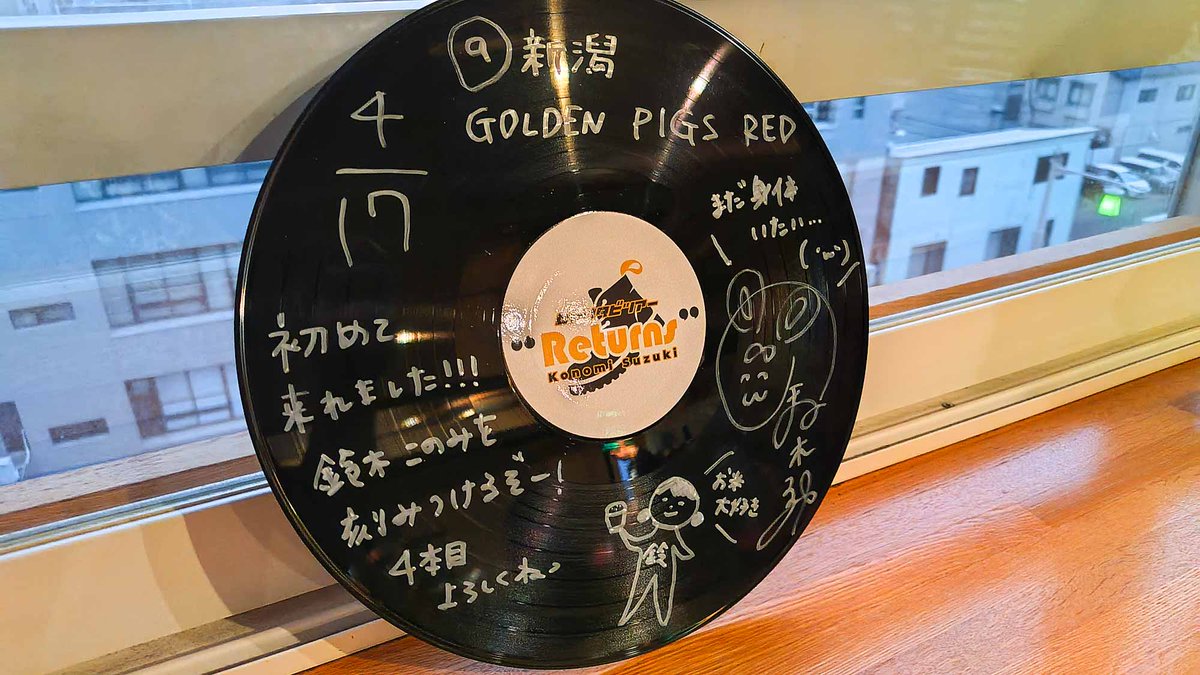 9 新潟
GOLDEN PIGS RED
4/17
まだ身体
いたい…
初めて
来れました!!!
鈴木このみを
刻みつけるぞー!
4本目
よろしくね
"Returns"
Konomi Suzuki
お米
大好き
鈴